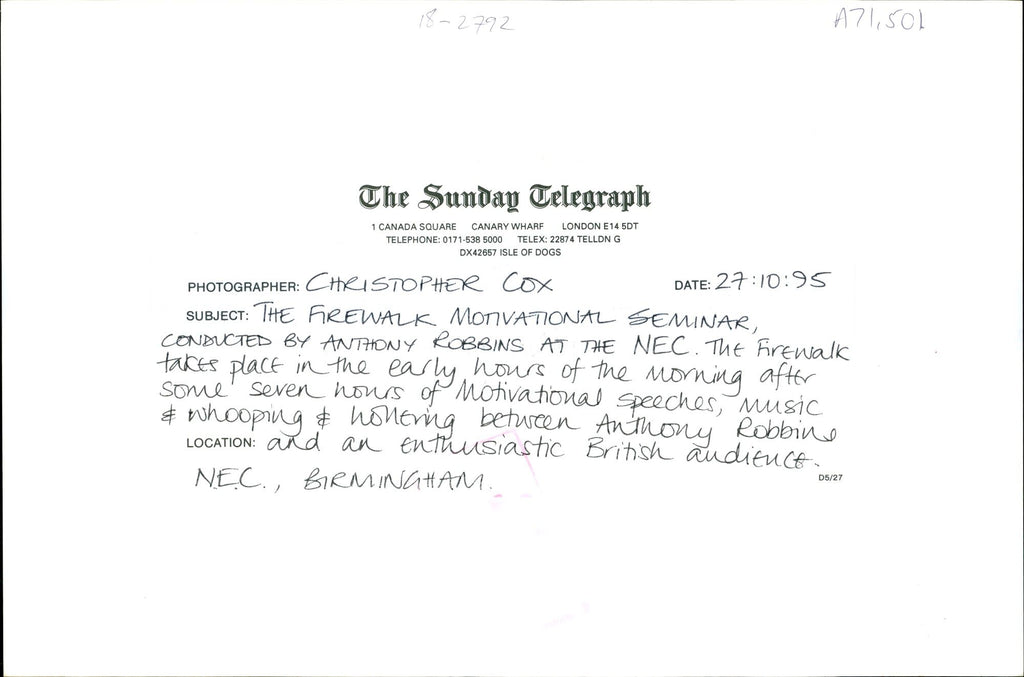 18-2792
A71,501
The Sunday Telegraph
1 CANADA SQUARE CANARY WHARF LONDON E14 5DT
TELEPHONE: 0171-538 5000 TELEX: 22874 TELLDN G
DX42657 ISLE OF DOGS
PHOTOGRAPHER: CHRISTOPHER COX DATE: 27:10:95
SUBJECT: THE FIREWALK MOTIVATIONAL SEMINAR,
CONDUCTED BY ANTHONY ROBBINS AT THE NEC. The Firewalk
takes place in the early hours of the morning after
some seven hours of Motivational speeches, music
& whooping & hollering between Anthony Robbins
LOCATION: and an enthusiastic British audience.
N.E.C., BIRMINGHAM.
D5/27